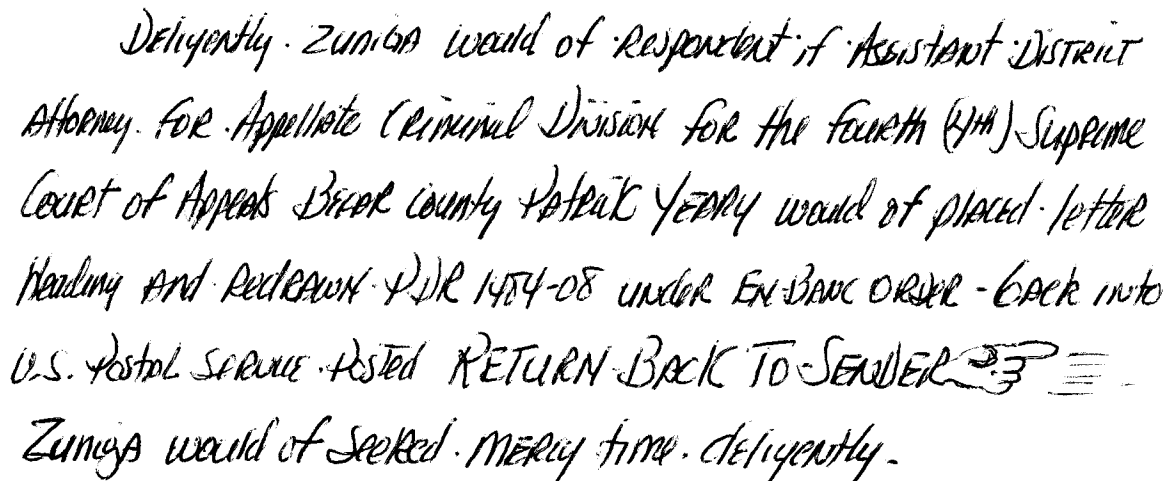 Deliyently. Zuniga would of respondent if Assistant District
Attorney. For. Appellate Criminal Division for the fourth (4th) Supreme
Court of Appeals Bexar County Patrick Yeary would of placed. letter
Heading And Redrawn PDR 1484-08 under En Banc Order - back into
U.S. Postal Service. Posted RETURN BACK TO SENDER
Zuniga would of seeked. mercy time. deliyently.